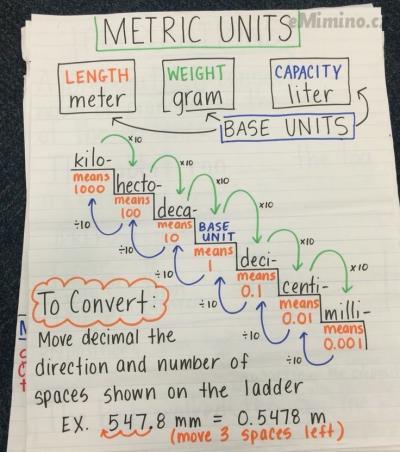 eMimino.cz
METRIC UNITS
LENGTH
meter
WEIGHT
gram
CAPACITY
liter
BASE UNITS
kilo-
means
1000
x10
hecto-
means
100
x10
deca-
means
10
x10
BASE
UNIT
means
1
x10
deci-
means
0.1
x10
centi-
means
0.01
x10
milli-
means
0.001
÷10
÷10
÷10
÷10
÷10
÷10
To Convert:
Move decimal the
direction and number of
spaces shown on the ladder
EX. 547.8 mm = 0.5478 m
(move 3 spaces left)